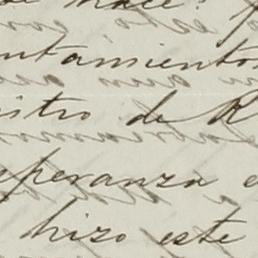 de hace
ntamientos
istro de R
speranza e
hizo este